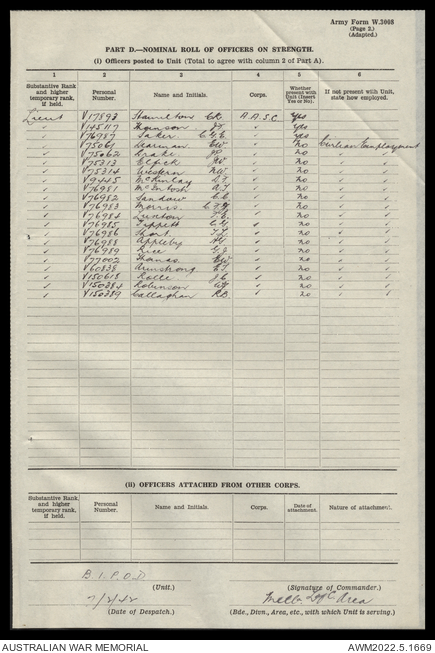 Army Form W.3008
(Page 2.)
(Adapted.)
PART D.—NOMINAL ROLL OF OFFICERS ON STRENGTH.
(i) Officers posted to Unit (Total to agree with column 2 of Part A).
1 2 3 4 5 6
Substantive Rank and higher temporary rank, if held. Personal Number. Name and Initials. Corps. Whether present with Unit (Insert Yes or No). If not present with Unit, state how employed.
Lieut V17893 Hamilton A.A.S.C. Yes
" V145117 " Yes
" V76987 " Yes
" V75061 " No Civilian Employment
" " No " "
" V75313 " no " "
" V75314 Western " no " "
" V9445 McKinlay " no " "
" V76981 McIntosh " no " "
" V76982 " no " "
" V76983 Morris " no " "
" V76984 " no " "
" V76985 Tippett " no " "
" V76986 Short " no " "
" V76988 Appleby " no " "
" V76989 Rice " no " "
" V77002 Thomas " no " "
" V60838 Armstrong " no " "
" V150618 " no " "
" V150384 Robinson " no " "
" V150389 Callaghan R.B. " no " "
(ii) OFFICERS ATTACHED FROM OTHER CORPS.
Substantive Rank and higher temporary rank, if held. Personal Number. Name and Initials. Corps. Date of attachment. Nature of attachment.
B.I.P.O.D
(Unit.) (Signature of Commander.)
7/2/42 Melb. L of C. Area
(Date of Despatch.) (Bde., Divn., Area, etc., with which Unit is serving.)
AUSTRALIAN WAR MEMORIAL AWM2022.5.1669